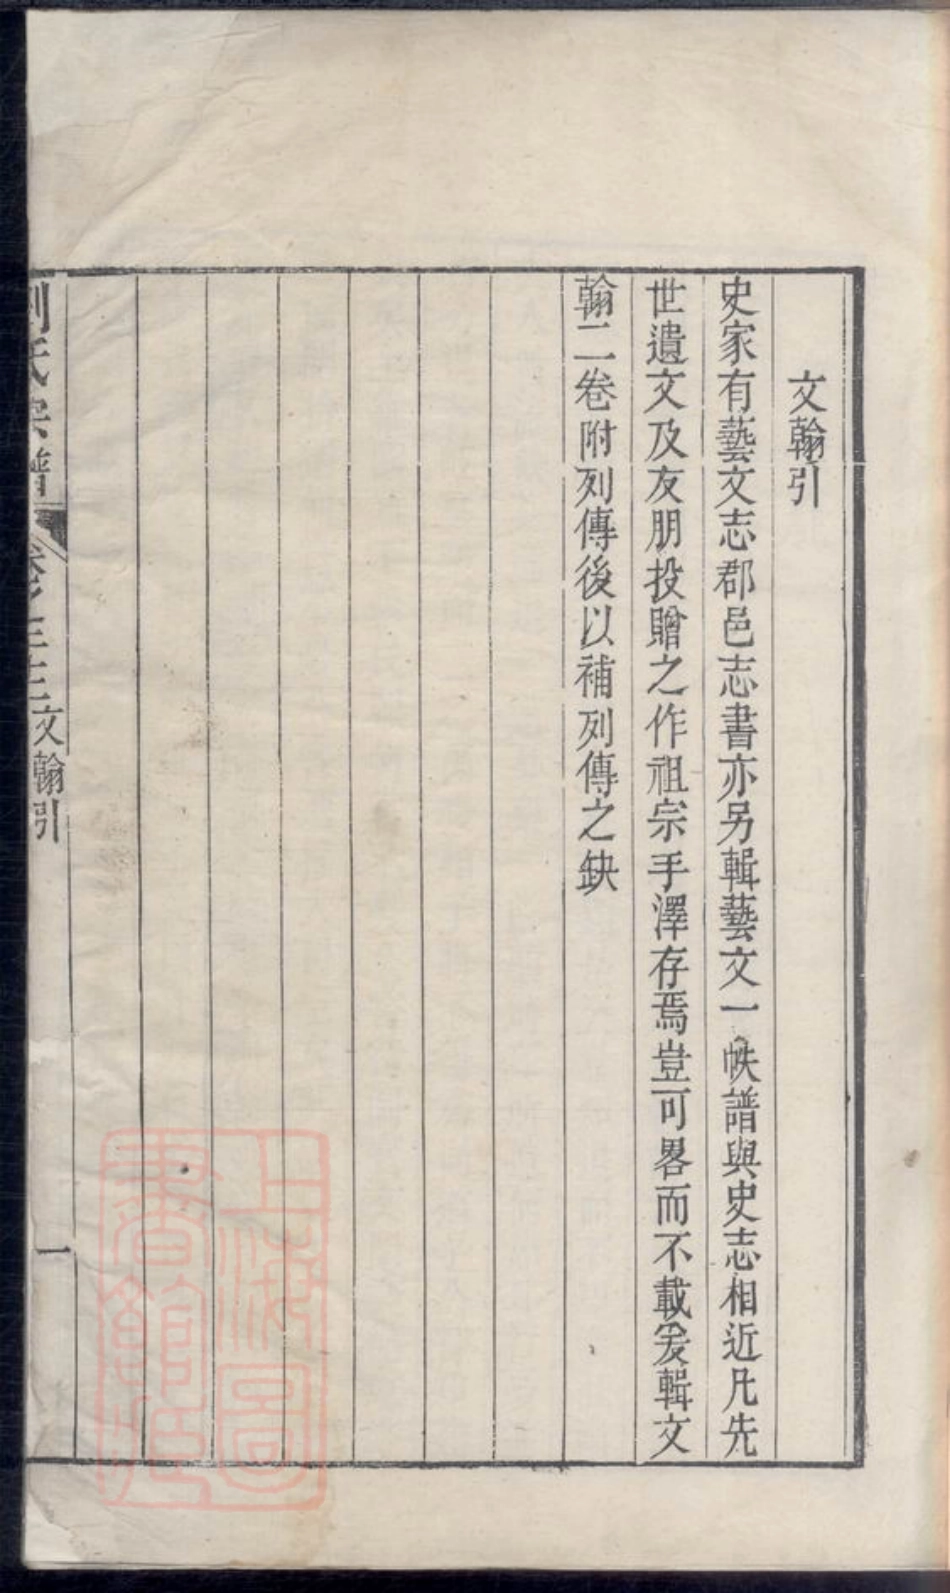 文翰引
史家有藝文志郡邑志書亦另輯藝文一帙譜與史志相近凡先
世遺文及友朋投贈之作祖宗手澤存焉豈可畧而不載爰輯文
翰二卷附列傳後以補列傳之缺
劉氏宗譜
卷之十三文翰引
一
上海圖
書館藏